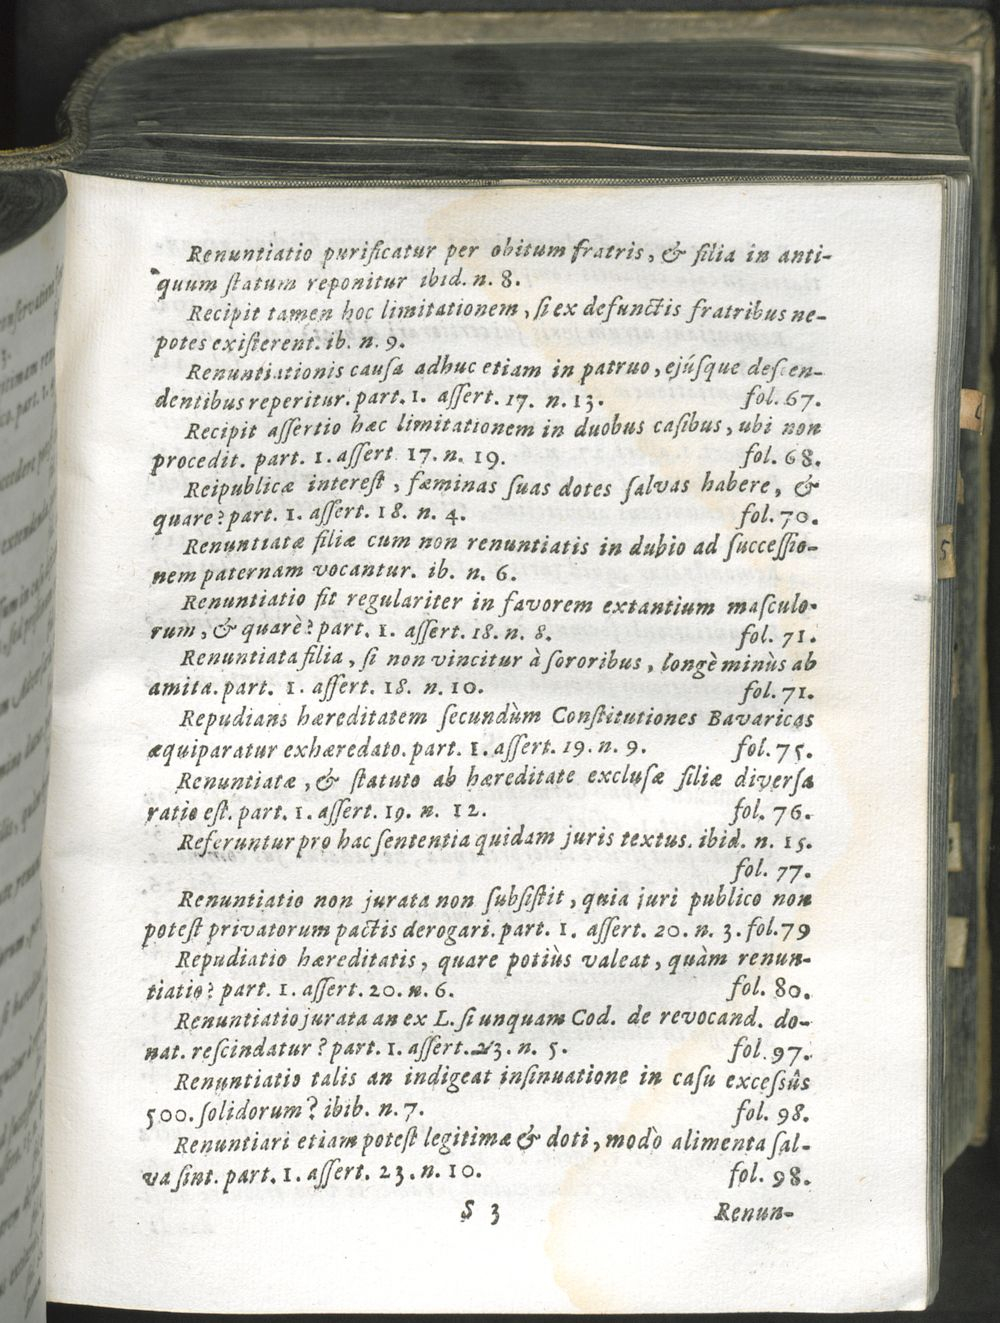 Renuntiatio purificatur per obitum fratris, & filia in anti-
quum ſtatum reponitur ibid. n. 8.
Recipit tamen hoc limitationem, ſi ex defunctis fratribus ne-
potes exiſterent. ib. n. 9.
Renuntiationis cauſa adhuc etiam in patruo, ejúſque deſcen-
dentibus reperitur. part. 1. aſſert. 17. n. 13. fol. 67.
Recipit aſſertio hæc limitationem in duobus caſibus, ubi non
procedit. part. 1. aſſert 17. n. 19. fol. 68.
Reipublicæ intereſt, fæminas ſuas dotes ſalvas habere, &
quare? part. 1. aſſert. 18. n. 4. fol. 70.
Renuntiatæ filiæ cum non renuntiatis in dubio ad ſucceſſio-
nem paternam vocantur. ib. n. 6.
Renuntiatio fit regulariter in favorem extantium maſculo-
rum, & quarè? part. 1. aſſert. 18. n. 8. fol. 71.
Renuntiata filia, ſi non vincitur à ſororibus, longè minùs ab
amita. part. 1. aſſert. 18. n. 10. fol. 71.
Repudians hæreditatem ſecundùm Conſtitutiones Bavaricas
æquiparatur exhæredato. part. 1. aſſert. 19. n. 9. fol. 75.
Renuntiatæ, & ſtatuto ab hæreditate excluſæ filiæ diverſa
ratio eſt. part. 1. aſſert. 19. n. 12. fol. 76.
Referuntur pro hac ſententia quidam juris textus. ibid. n. 15.
fol. 77.
Renuntiatio non jurata non ſubſiſtit, quia juri publico non
poteſt privatorum pactis derogari. part. 1. aſſert. 20. n. 3. fol. 79
Repudiatio hæreditatis, quare potiùs valeat, quàm renun-
tiatio? part. 1. aſſert. 20. n. 6. fol. 80.
Renuntiatio jurata an ex L. ſi unquam Cod. de revocand. do-
nat. reſcindatur? part. 1. aſſert. 23. n. 5. fol. 97.
Renuntiatio talis an indigeat inſinuatione in caſu exceſsûs
500. ſolidorum? ibib. n. 7. fol. 98.
Renuntiari etiam poteſt legitimæ & doti, modò alimenta ſal-
va ſint. part. 1. aſſert. 23. n. 10. fol. 98.
S 3 Renun-